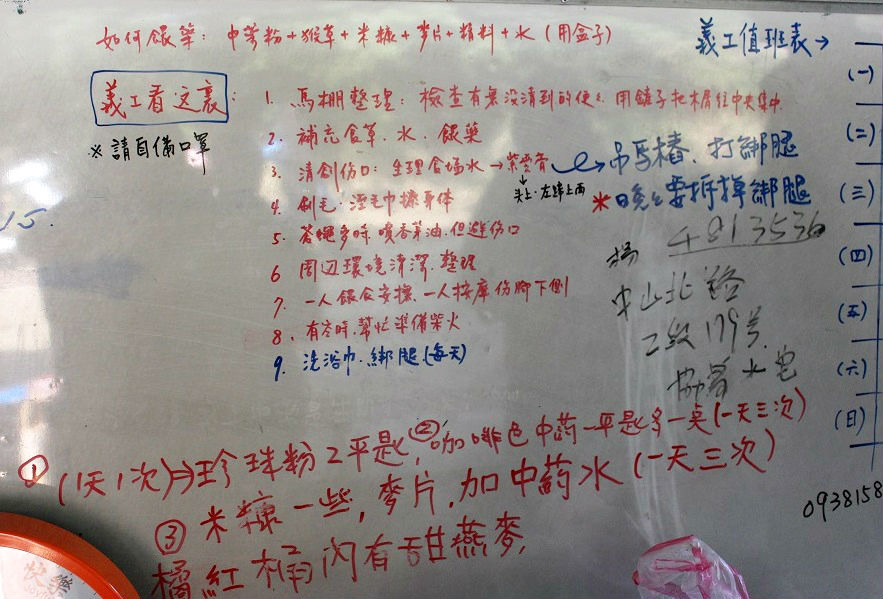 如何餵藥: 中藥粉+猴草+米糠+麥片+精料+水(用盒子)
義工看這裏:
※請自備口罩
1. 馬棚整理: 檢查有無沒清到的便便. 用鏟子把木屑往中央集中.
2. 補充食草、水、餵藥
3. 清創傷口: 生理食塩水→紫雲膏
頭上.左蹄上兩
→吊馬樁、打綁腿
*晚上要拆掉綁腿
4. 刷毛. 溼毛巾擦身体
5. 蒼蠅多時. 噴香茅油. 但避傷口
6 周边環境清潔.整理
7. 一人餵食安撫. 一人按摩傷腳下側
8. 有空時.幫忙準備柴火
9. 洗浴巾.綁腿(每天)
義工值班表→
(一)
(二)
(三)
(四)
(五)
(六)
(日)
15.
楊 4813536
中山北路
二段179号.
水皂
① (1天1次)⇒珍珠粉2平匙, ②咖啡色中葯一平匙多一点(一天三次)
③ 米糠一些, 麥片, 加中葯水(一天三次)
橘紅桶內有甜燕麥,
0938158